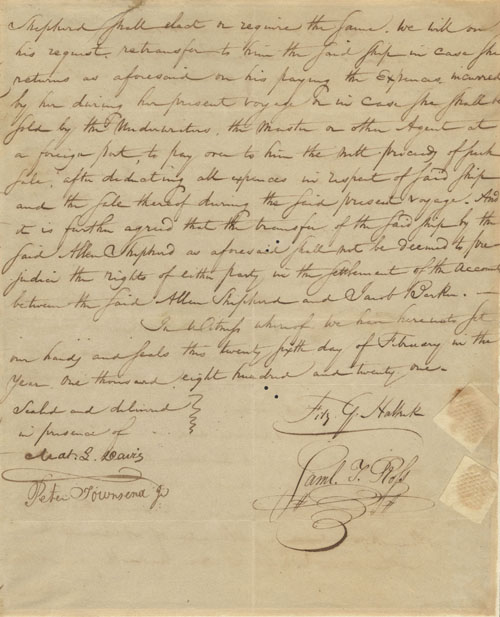 Shepherd shall elect or require the same, we will on
his request, retransfer to him the said ship in case she
returns as aforesaid on his paying the Expences incurred
by her during her present voyage & in case she shall be
sold by the Underwriters, the Master or other Agent at
a foreign port, to pay over to him the nett proceeds of such
sale, after deducting all expences in respect of said ship
and the sale thereof during the said present voyage. And
it is further agreed that the transfer of the said ship by the
said Allen Shepherd as aforesaid shall not be deemed to pre-
judice the rights of either party in the settlement of the Account
between the said Allen Shepherd and Jacob Barker. —
In Witness whereof we have hereunto set
our hands and seals this twenty sixth day of February in the
Year one thousand eight hundred and twenty one.
Seald and delivered
in presence of
Mat. L. Davis
Peter Townsend Jr
Fitz G. Halleck
Saml. F.